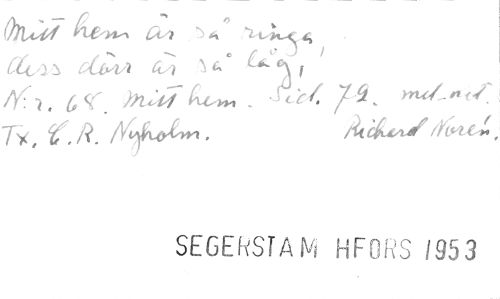 Mitt hem är så ringa,
dess dörr är så låg,
N:r. 68. Mitt hem. Sid. 79. med not.
Tx. C. R. Nyholm. Richard Norén.
SEGERSTAM HFORS 1953